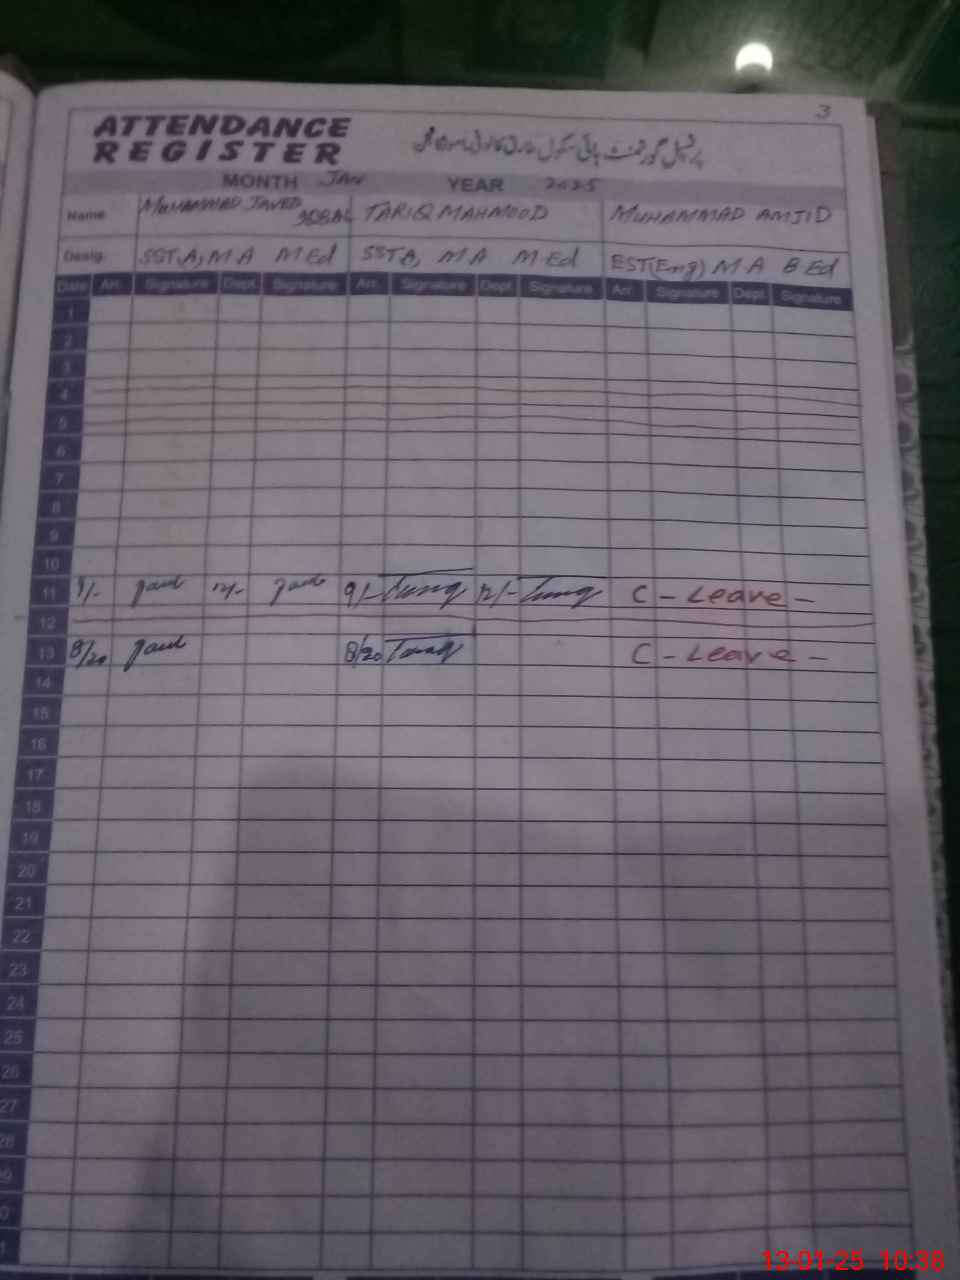 3
ATTENDANCE
REGISTER
پرنسپل گورنمنٹ ہائی سکول
MONTH JAN YEAR 2025
Name MUHAMMAD JAVED IQBAL TARIQ MAHMOOD MUHAMMAD AMJID
Desig. SSTA, MA M Ed SSTA, MA M Ed EST(Eng) MA B Ed
Date Arr. Signature Dept. Signature Arr. Signature Dept. Signature Arr. Signature Dept. Signature
1
2
3
4
5
6
7
8
9
10
11 9/- 12/- 9/- 12/- C - Leave -
12
13 8/20 8/20 C - Leave -
14
15
16
17
18
19
20
21
22
23
24
25
26
27
28
9
0
1
13-01-25 10:38